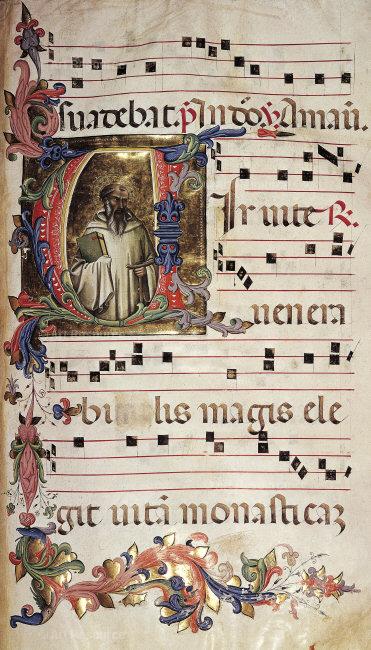 suadebat p In dño ꝟ Amaũ.
VIr uite R.
uenera
bi lis magis ele
git uitã monasticaz